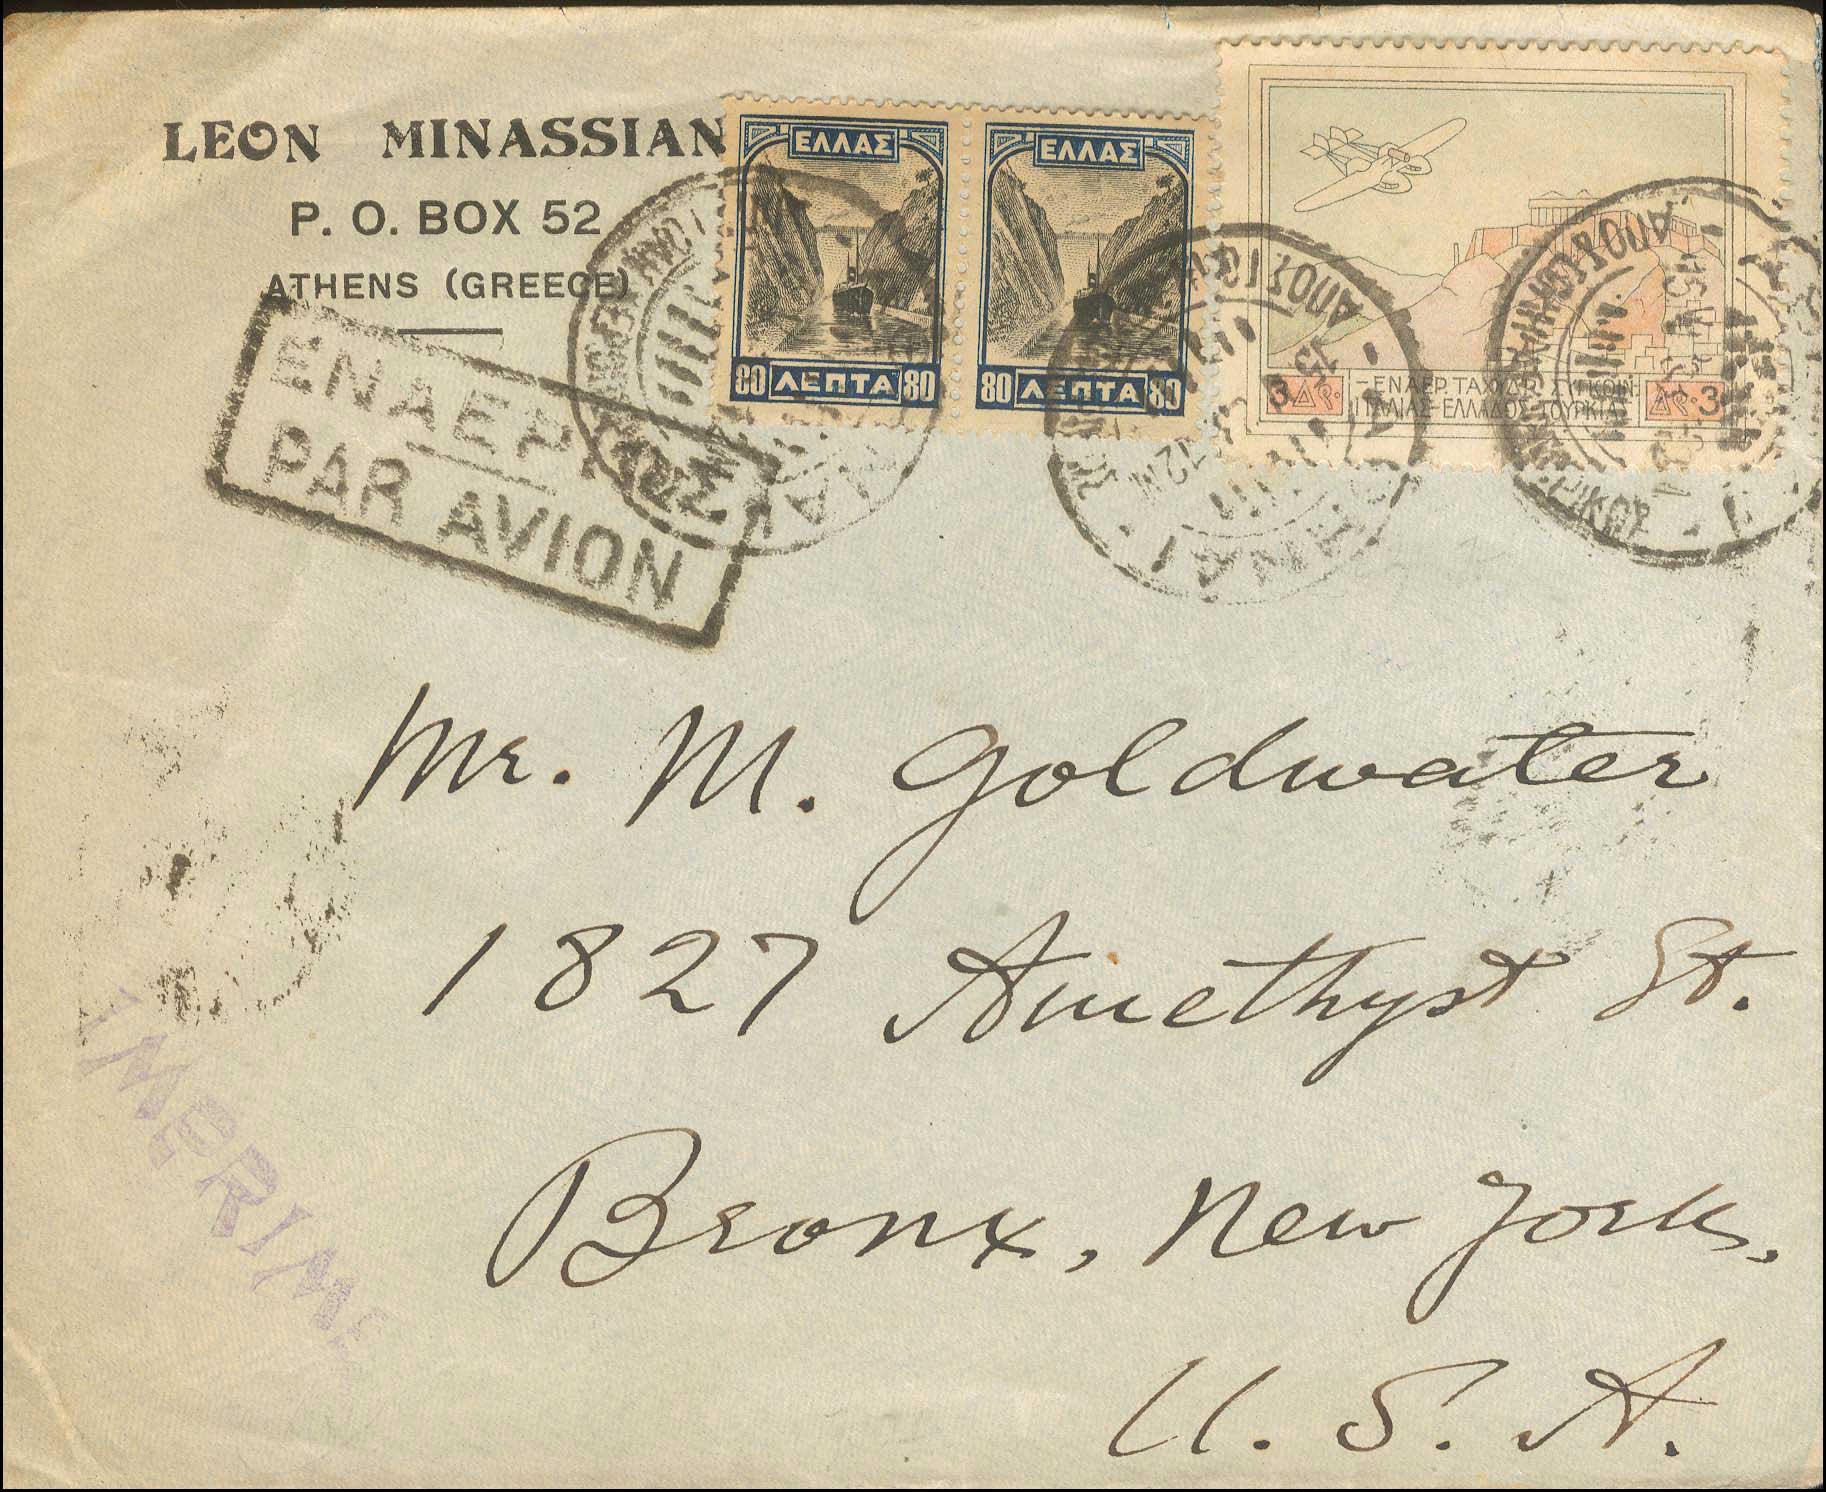 LEON MINASSIAN
P. O. BOX 52
ATHENS (GREECE)
ΕΛΛΑΣ
80 ΛΕΠΤΑ 80
ΕΛΛΑΣ
80 ΛΕΠΤΑ 80
3 Δρ.
-ΕΝΑΕΡ. ΤΑΧΥΔΡ. ΣΥΓΚΟΙΝ.
ΙΤΑΛΙΑΣ-ΕΛΛΑΔΟΣ-ΤΟΥΡΚΙΑΣ
Δρ. 3
PAR AVION
Mr. M. Goldwater
1827 Amethyst St.
Bronx, New York,
U. S. A.